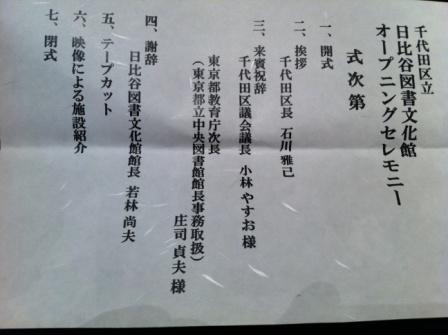 千代田区立
日比谷図書文化館
オープニングセレモニー
式次第
一、開式
二、挨拶
千代田区長 石川 雅己
三、来賓祝辞
千代田区議会議長 小林 やすお 様
東京都教育庁次長
（東京都立中央図書館館長事務取扱）
庄司 貞夫 様
四、謝辞
日比谷図書文化館館長 若林 尚夫
五、テープカット
六、映像による施設紹介
七、閉式